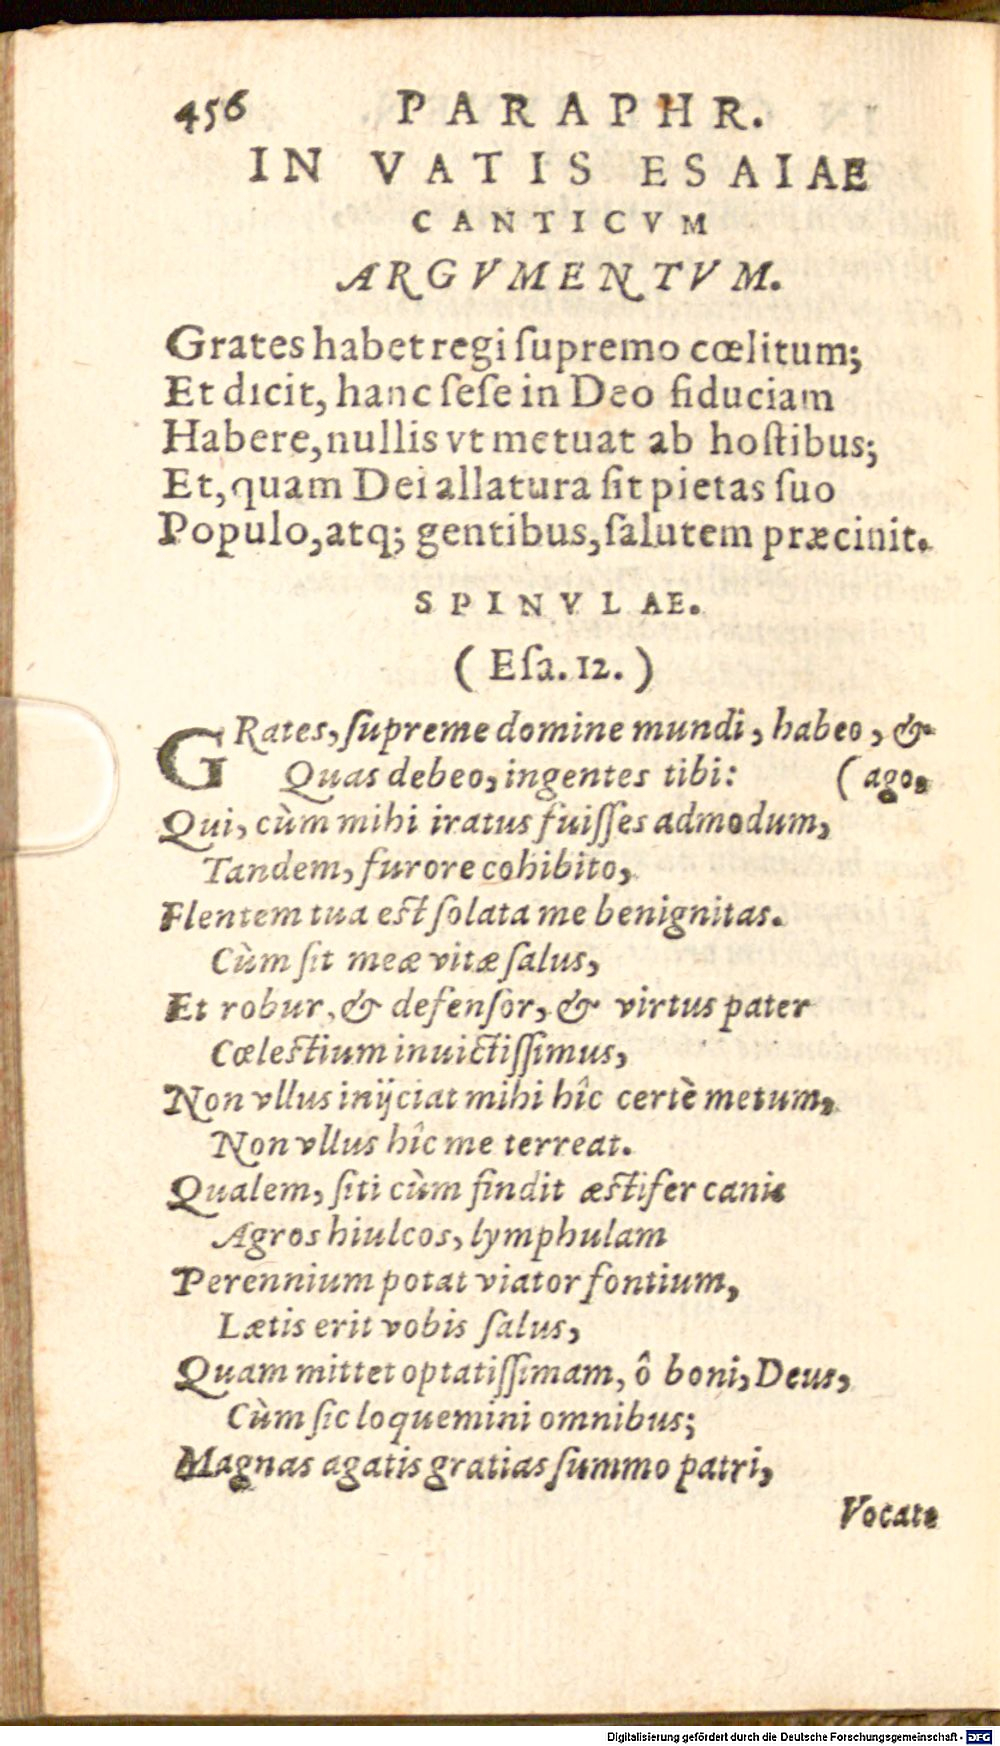 456 PARAPHR.
IN VATIS ESAIAE
CANTICVM
ARGVMENTVM.
Grates habet regi ſupremo cœlitum;
Et dicit, hanc ſeſe in Deo fiduciam
Habere, nullis vt metuat ab hoſtibus;
Et, quam Dei allatura ſit pietas ſuo
Populo, atq; gentibus, ſalutem præcinit.
SPINVLAE.
(Eſa. 12.)
GRates, ſupreme domine mundi, habeo, &
Quas debeo, ingentes tibi: (ago,
Qui, cùm mihi iratus fuiſſes admodum,
Tandem, furore cohibito,
Flentem tua eſt ſolata me benignitas.
Cùm ſit meæ vitæ ſalus,
Et robur, & defenſor, & virtus pater
Cœleſtium inuictiſſimus,
Non vllus inijciat mihi hîc certè metum,
Non vllus hîc me terreat.
Qualem, ſiti cùm findit æſtifer canis
Agros hiulcos, lymphulam
Perennium potat viator fontium,
Lætis erit vobis ſalus,
Quam mittet optatiſſimam, ô boni, Deus,
Cùm ſic loquemini omnibus;
Magnas agatis gratias ſummo patri,
Vocate
Digitalisierung gefördert durch die Deutsche Forschungsgemeinschaft - DFG